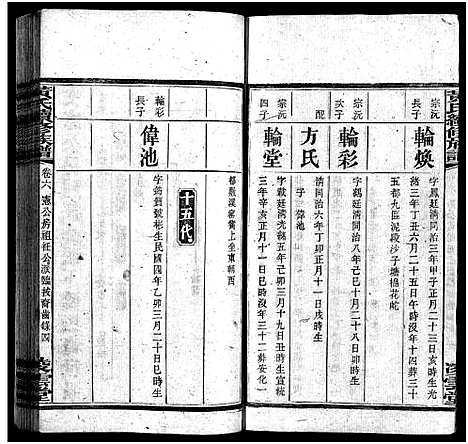 黃氏續修族譜
宗沅長子
輪煥
字鳳廷清同治三年甲子正月十二日亥時生光
緒三年丁丑四月十二日午時沒年十四葬三十
五都九區泥段沙子塘棉花蛇
宗沅次子
輪彩
清同治八年己巳十月二十八日巳時生
配
方氏
清同治六年丁卯正月十六日戌時生
子 偉池
宗沅四子
輪堂
字載廷清光緒五年己卯三月十九日丑時生宣統
三年辛亥正月十一日巳時沒年三十二葬安化一
都殿溪窰賞上坐東朝西
十五代
輪彩長子
偉池
字錦鈿號彬生民國四年乙卯三月二十日巳時生
黃氏續修族譜
卷六
憲公房祖任公派臨技
齒錄
四